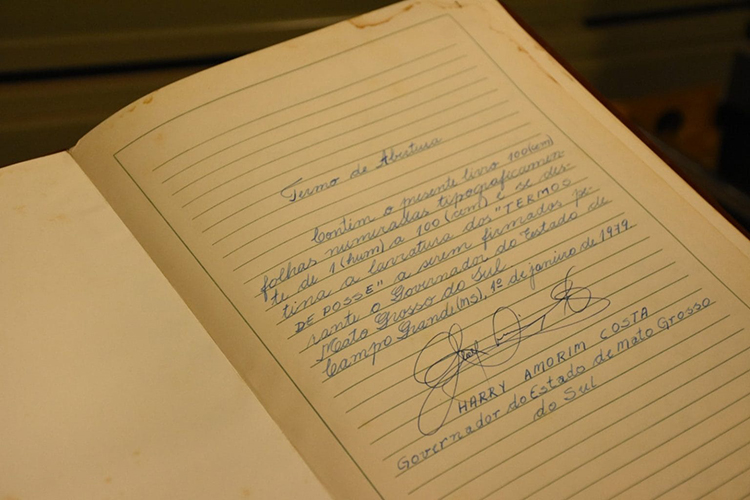 Termo de Abertura
Contém o presente livro 100 (cem)
folhas numeradas tipograficamen-
te de 1 (hum) a 100 (cem) e se des-
tina a lavratura dos "TERMOS
DE POSSE" a serem firmados pe-
rante o Governador do Estado de
Mato Grosso do Sul
Campo Grande (MS), 1º de janeiro de 1979.
HARRY AMORIM COSTA
Governador do Estado de Mato Grosso
do Sul